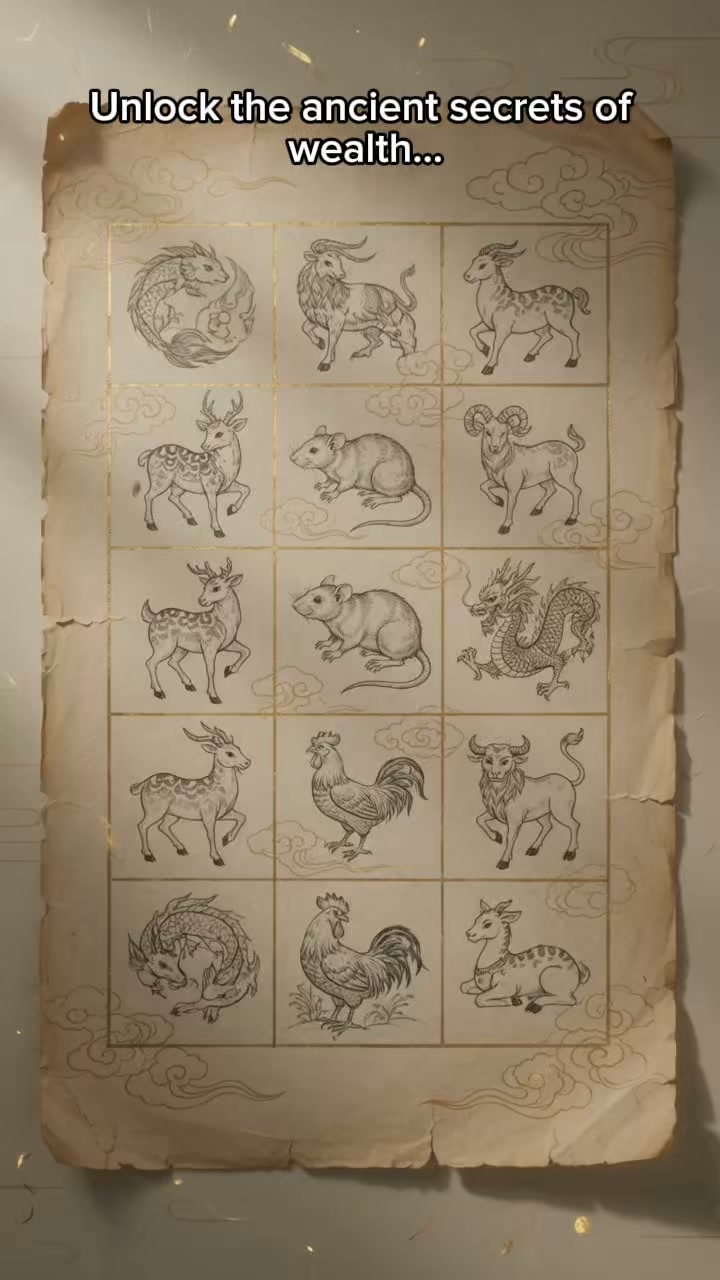 Unlock the ancient secrets of
wealth...